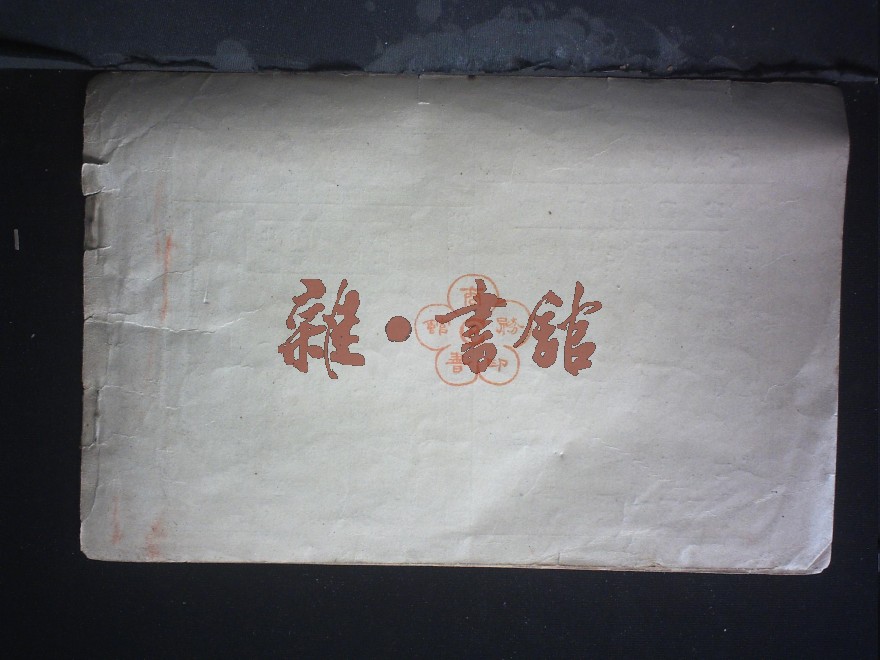 雜·書館
商務印書館